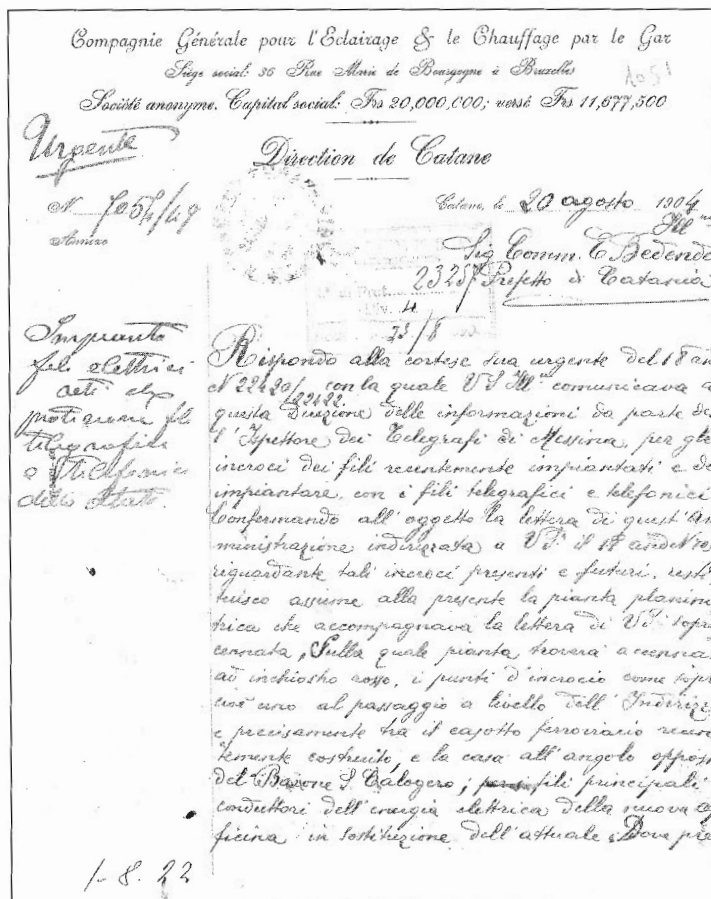 Compagnie Générale pour l'Eclairage & le Chauffage par le Gaz
Siège social: 36 Rue Marie de Bourgogne à Bruxelles
1051
Société anonyme. Capital social: Frs 20,000,000; versé Frs 11,677,500
Urgente
Direction de Catane
N. 7054/49
Catane, le 20 agosto 1904
Annexe
Ill
Sig Comm. C Bedendo
2325 Prefetto di Catania
4
23/8
Impianto
fili elettrici
fili
telegrafici
e telefonici
dello Stato.
Rispondo alla cortese sua urgente del 18 an
N 22420/22422 con la quale V S Ill comunicava a
questa Direzione delle informazioni da parte de
l'Ispettore dei Telegrafi di Messina, per gle
incroci dei fili recentemente impiantati e da
impiantare, con i fili telegrafici e telefonici
Confermando all'oggetto la lettera di quest'Am
ministrazione indirizzata a V.S. il and N
riguardante tali incroci presenti e futuri, resti
tuisco assieme alla presente la pianta planime
trica che accompagnava la lettera di V.S. sopra
cennata, Sulla quale pianta, troverà accenna
ad inchiostro rosso, i punti d'incrocio come sopr
cioè uno al passaggio a livello dell'Indirizz
e precisamente tra il casotto ferroviario recen
temente costruito, e la casa all'angolo oppost
del Barone S. Calogero; fili principali
conduttori dell'energia elettrica della nuova of
ficina in sostituzione dell'attuale. Dove pre
1-8.22